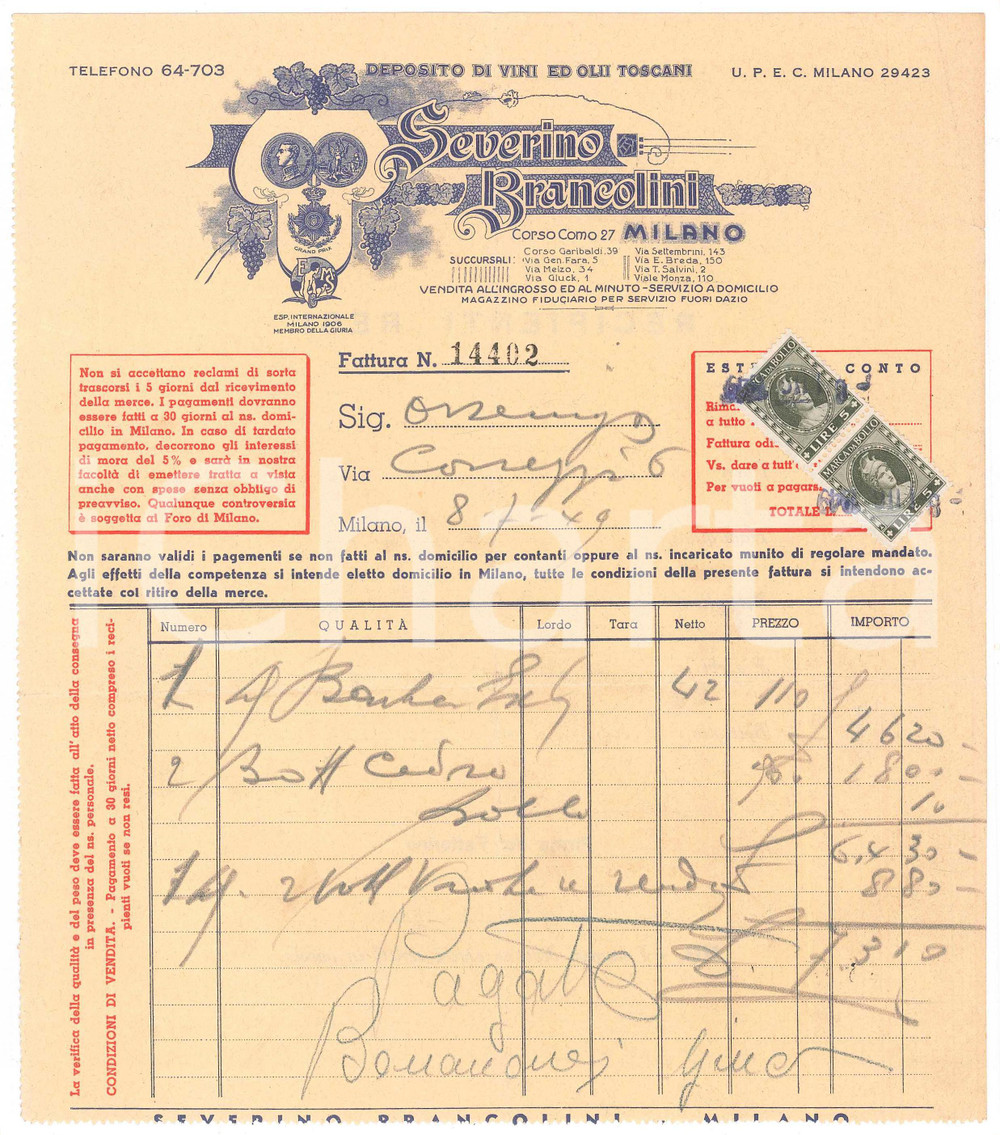 TELEFONO 64-703
DEPOSITO DI VINI ED OLII TOSCANI
U. P. E. C. MILANO 29423
Severino
Brancolini
Corso Como 27 MILANO
SUCCURSALI:
Corso Garibaldi, 39
Via Gen. Fara, 5
Via Melzo, 34
Via Gluck, 1
Via Settembrini, 143
Via E. Breda, 150
Via T. Salvini, 2
Viale Monza, 110
VENDITA ALL'INGROSSO ED AL MINUTO - SERVIZIO A DOMICILIO
MAGAZZINO FIDUCIARIO PER SERVIZIO FUORI DAZIO
GRAND PRIX
ESP. INTERNAZIONALE
MILANO 1906
MEMBRO DELLA GIURIA
Non si accettano reclami di sorta
trascorsi i 5 giorni dal ricevimento
della merce. I pagamenti dovranno
essere fatti a 30 giorni al ns. domi-
cilio in Milano. In caso di tardato
pagamento, decorrono gli interessi
di mora del 5% e sarà in nostra
facoltà di emettere tratta a vista
anche con spese senza obbligo di
preavviso. Qualunque controversia
è soggetta al Foro di Milano.
Fattura N. 14402
Sig.
Via
Milano, il 8 - 7 - 49
CONTO
a tutto
Fattura odi
Vs. dare a tutt'
Per vuoti a pagars
TOTALE
MARCA DA BOLLO
LIRE 5
MARCA DA BOLLO
LIRE 5
Non saranno validi i pagamenti se non fatti al ns. domicilio per contanti oppure al ns. incaricato munito di regolare mandato.
Agli effetti della competenza si intende eletto domicilio in Milano, tutte le condizioni della presente fattura si intendono ac-
cettate col ritiro della merce.
La verifica della qualità e del peso deve essere fatta all'atto della consegna
in presenza del ns. personale.
CONDIZIONI DI VENDITA. - Pagamento a 30 giorni netto compreso i reci-
pienti vuoti se non resi.
Numero QUALITÀ Lordo Tara Netto PREZZO IMPORTO
1 42 110 4620 -
2 Bott 1800 -
bollo 10
6.430 -
880 -
7.310
Pagato
Gino
SEVERINO BRANCOLINI - MILANO